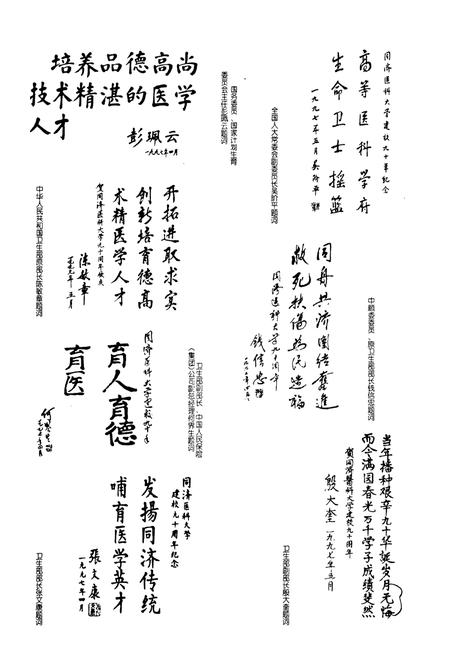 培养品德高尚
技术精湛的医学
人才
彭珮云
一九九七年四月
国务委员、国家计划生育
委员会主任彭珮云题词
同济医科大学建校九十年纪念
高等医科学府
生命卫士摇篮
一九九七年五月吴阶平
全国人大常委会副委员长吴阶平题词
开拓进取求实
创新培育德高
术精医学人才
贺同济医科大学九十周年校庆
陈敏章
五月
中华人民共和国卫生部原部长陈敏章题词
同舟共济团结奋進
救死扶傷為民造福
同济医科大学九十周年
钱信忠
中顾委委员、原卫生部部长钱信忠题词
同济医科大学建校九十年
育人育德
育医
何界生
卫生部副部长、中国人民保险
(集团)公司副总经理何界生题词
同济医科大学
建校九十周年纪念
发揚同济传统
哺育医学英才
張文康
一九九七年四月
卫生部部长张文康题词
当年播种艰辛九十华诞岁月无悔
而今满园春光万千学子成绩斐然
贺同济醫科大学建校九十周年
殷大奎 一九九七年五月
卫生部副部长殷大奎题词